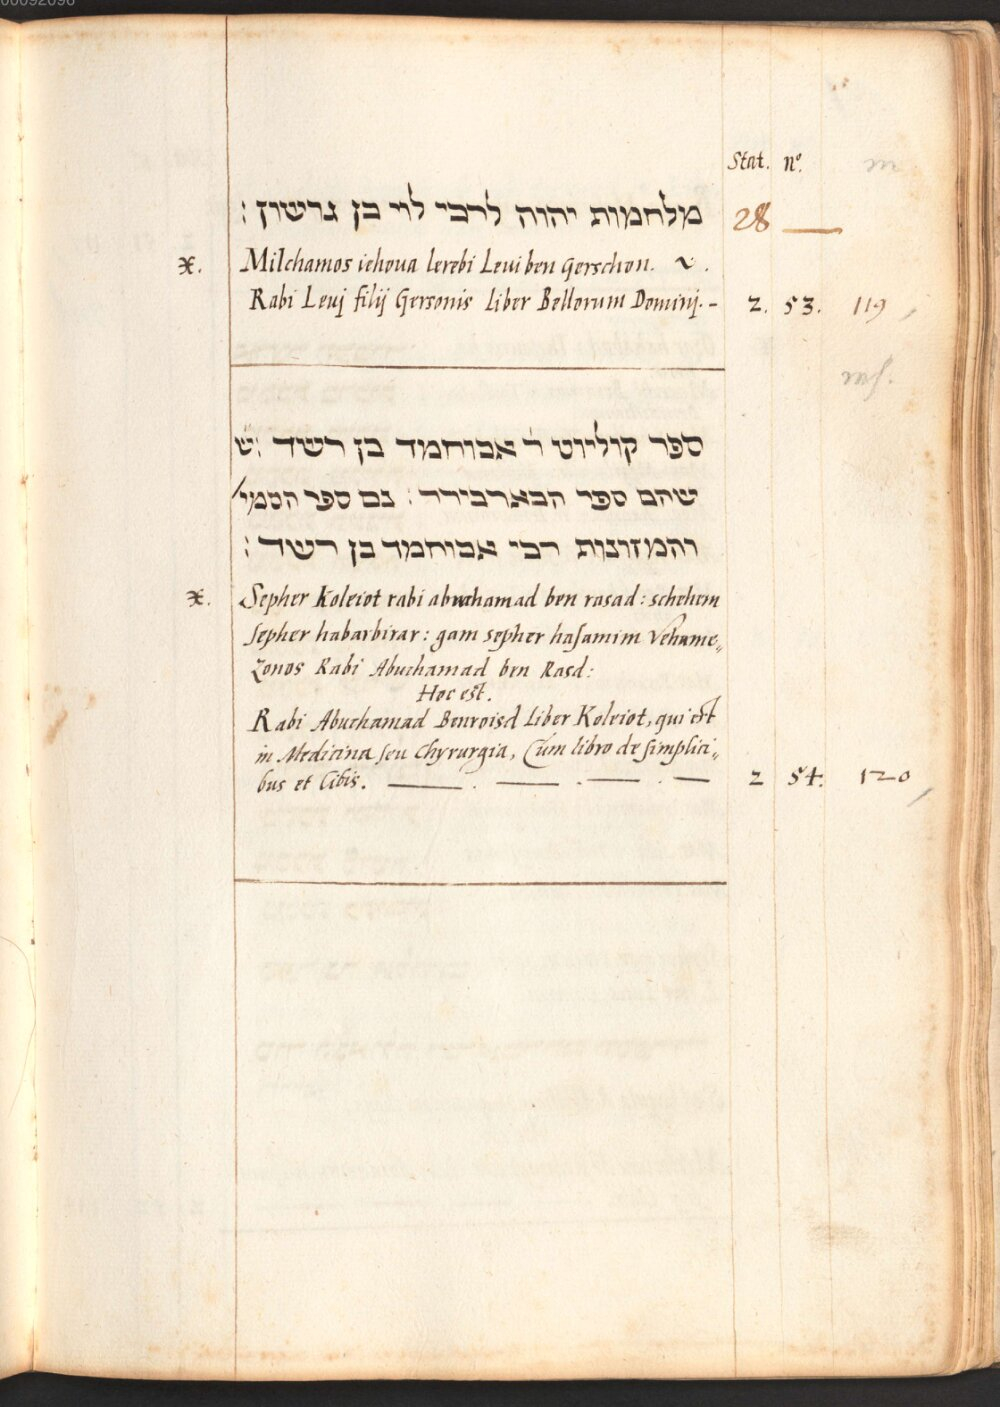 Stat. nº.
מלחמות יהוה לרבי לוי בן גרשון : 28 —
x. Milchamos iehoua lerebi Leui ben Gerschon. ~ .
Rabi Leuj filij Gersonis liber Bellorum Dominj. - 2. 53. 119
ספר קוליוט ר אבוחמד בן רשד : ש
שהם ספר הבארבירר : גם ספר הסמי
והמזונות רבי אבוחמד בן רשד :
x. Sepher Koleiot rabi abuchamad ben rasad : schehem
sepher habarbirar : gam sepher hasamim Vehame„
zonos Rabi Abuchamad ben Rasd :
Hoc est.
Rabi Abuchamad Benroisd Liber Koleiot, qui est
in Medicina seu Chyrurgia, Cum libro de simplici„
bus et Cibis. — . — . — . — 2 54. 120